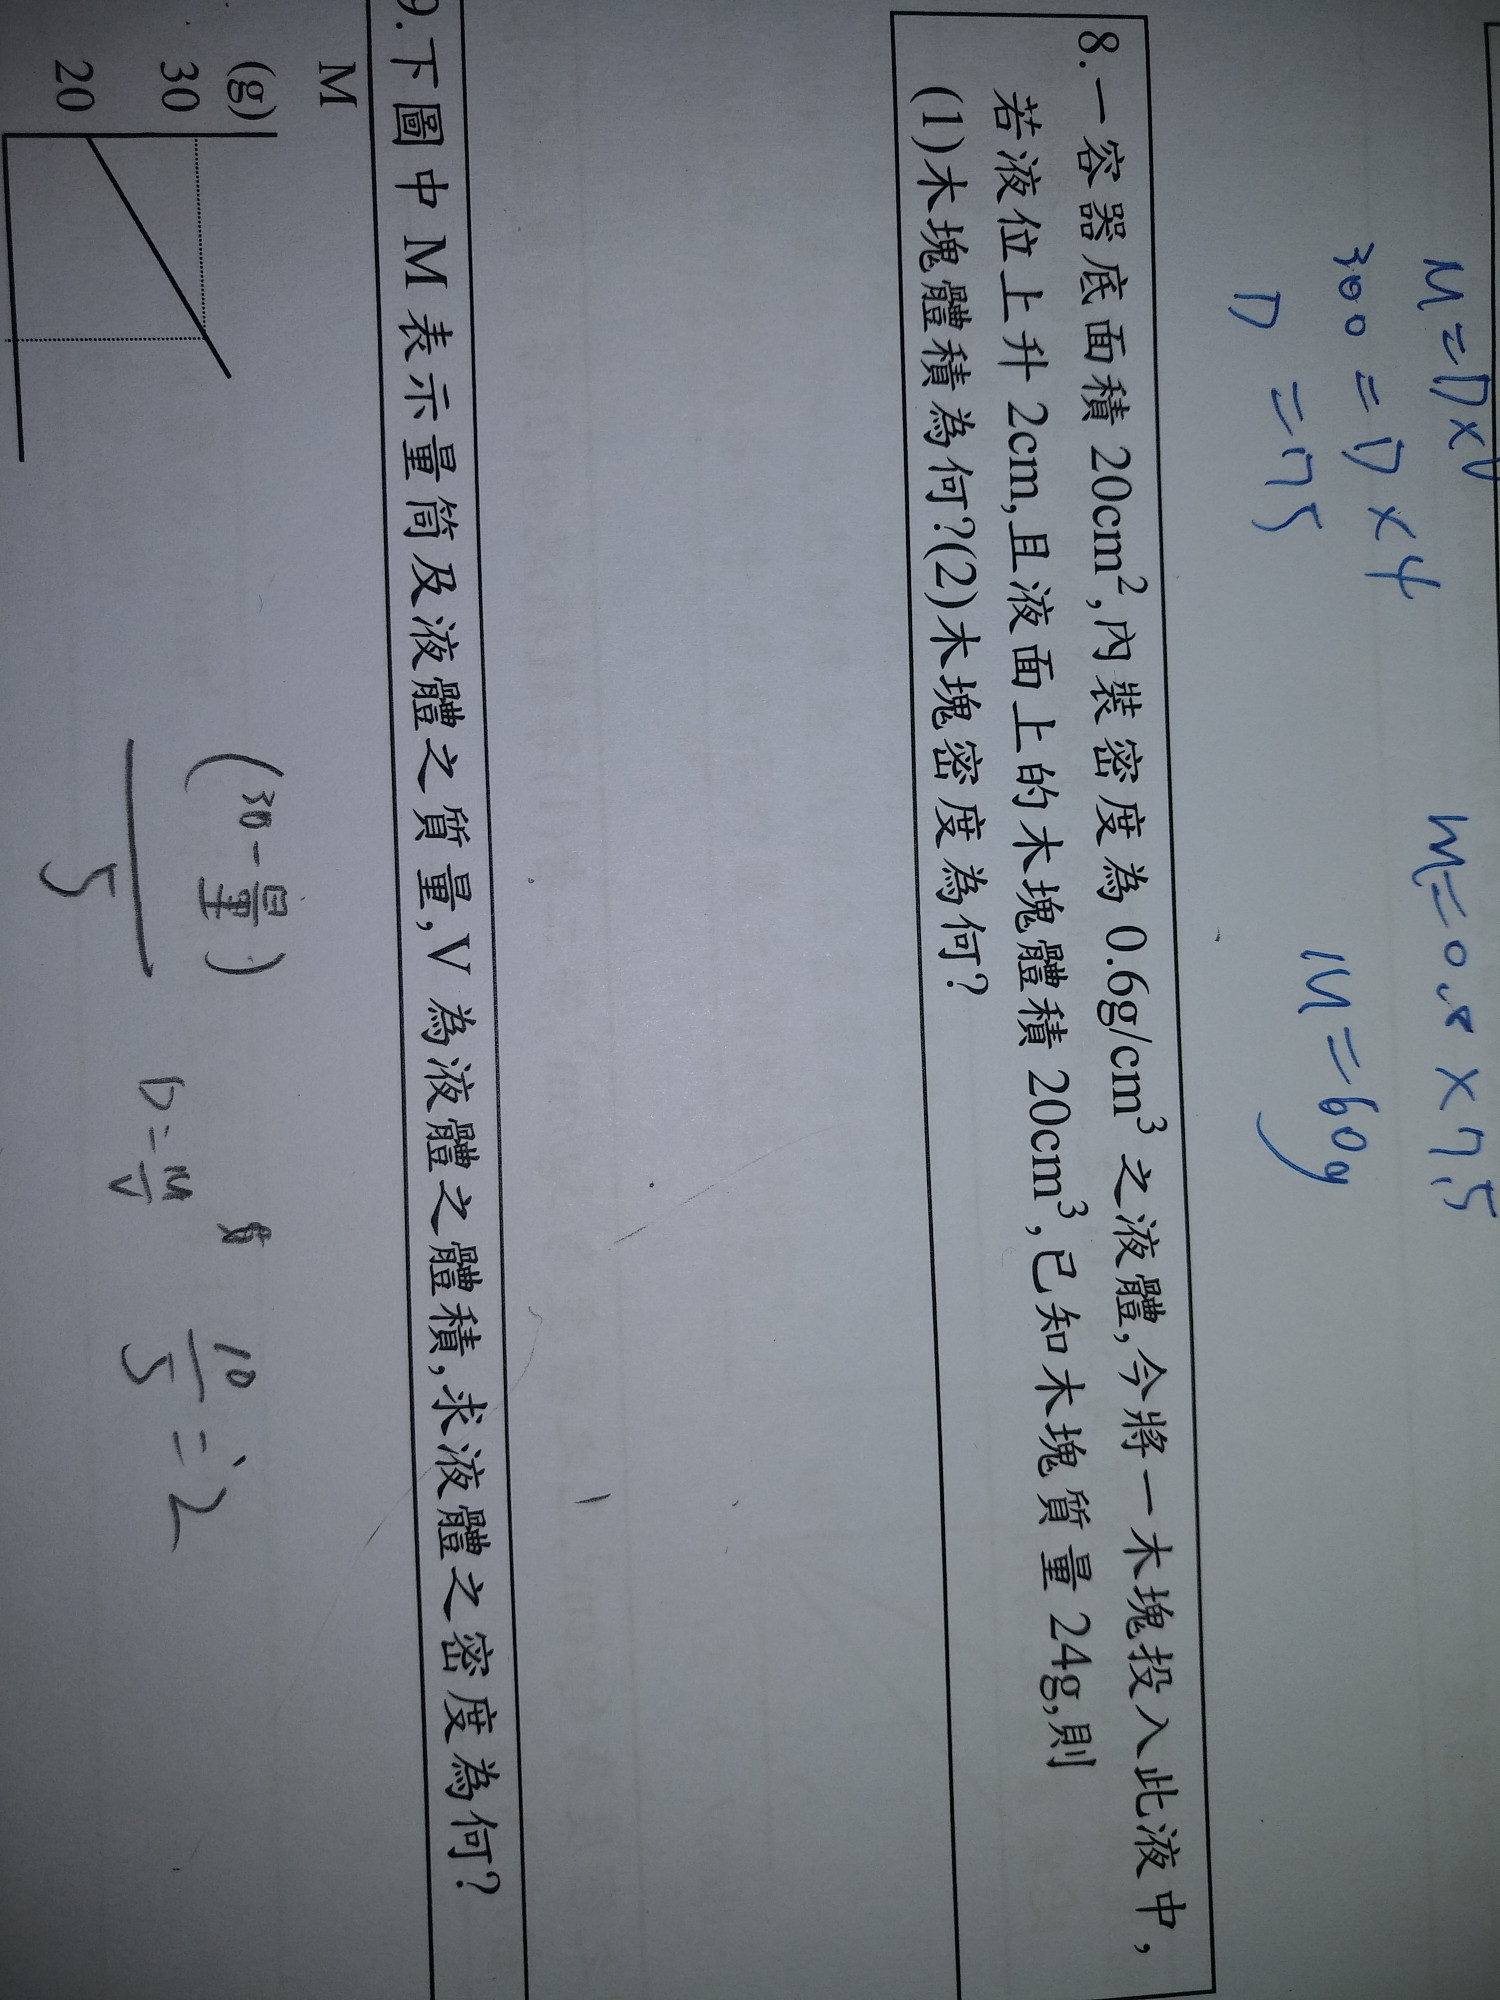 M=D×V
300=D×4
D=75
m=0.8×75
M=60g
8.一容器底面積20cm²,內裝密度為0.6g/cm³之液體,今將一木塊投入此液中,
若液位上升2cm,且液面上的木塊體積20cm³,已知木塊質量24g,則
(1)木塊體積為何?(2)木塊密度為何?
9.下圖中M表示量筒及液體之質量,V為液體之體積,求液體之密度為何?
M
(g)
30
20
(30-量)
5
D=M/V
10/5=2